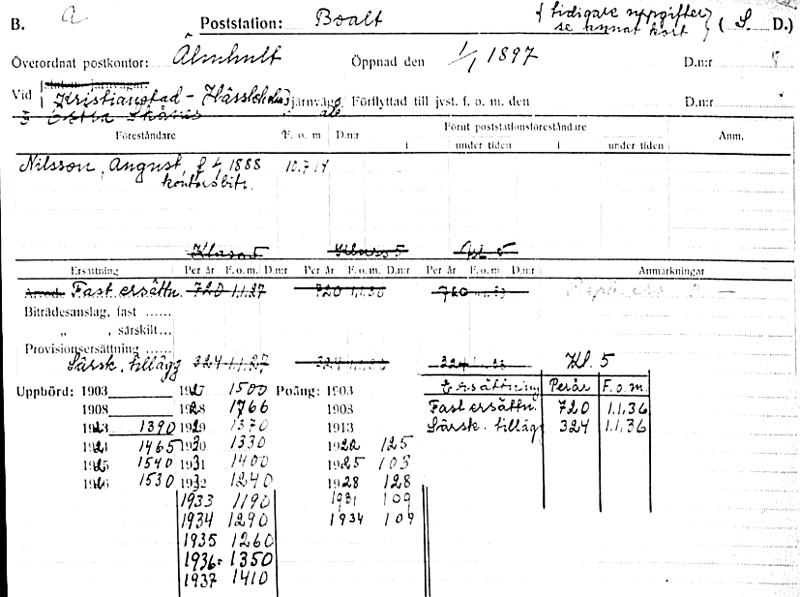 B. a Poststation: Boalt {tidigare uppgifter se annat kort} (S. D.)
Överordnat postkontor: Älmhult Öppnad den 1/1 1897 D.n:r
Vid Kristianstad - Hässleholms järnväg. Förflyttad till jvst. f. o. m. den D.n:r
Östra Skånes
Föreståndare F. o. m D.n:r Förut poststationsföreståndare Anm.
i under tiden i under tiden
Nilsson, August, f 1888 10.7.14
kontorsbitr.
Klass 5 Klass 5 Kl. 5
Ersättning Per år F.o.m. D.n:r Per år F.o.m. D.n:r Per år F.o.m. D.n:r Anmärkningar
Arvode Fast ersättn. 720 1.1.27 720 1.1.30 720 1.1.33
Biträdesanslag, fast ......
„ , särskilt ......
Provisionsersättning ......
Särsk. tillägg 324 1.1.27 324 1.1.30 324 1.1.33 Kl. 5
Uppbörd: 1903 1927 1500 Poäng: 1903 Ersättning Per år F.o.m.
1908 1928 1766 1908 Fast ersättn. 720 1.1.36
1923 1390 1929 1370 1913 Särsk. tillägg 324 1.1.36
1924 1465 1930 1330 1922 125
1925 1540 1931 1400 1925 103
1926 1530 1932 1240 1928 128
1933 1190 1931 109
1934 1290 1934 109
1935 1260
1936 1350
1937 1410